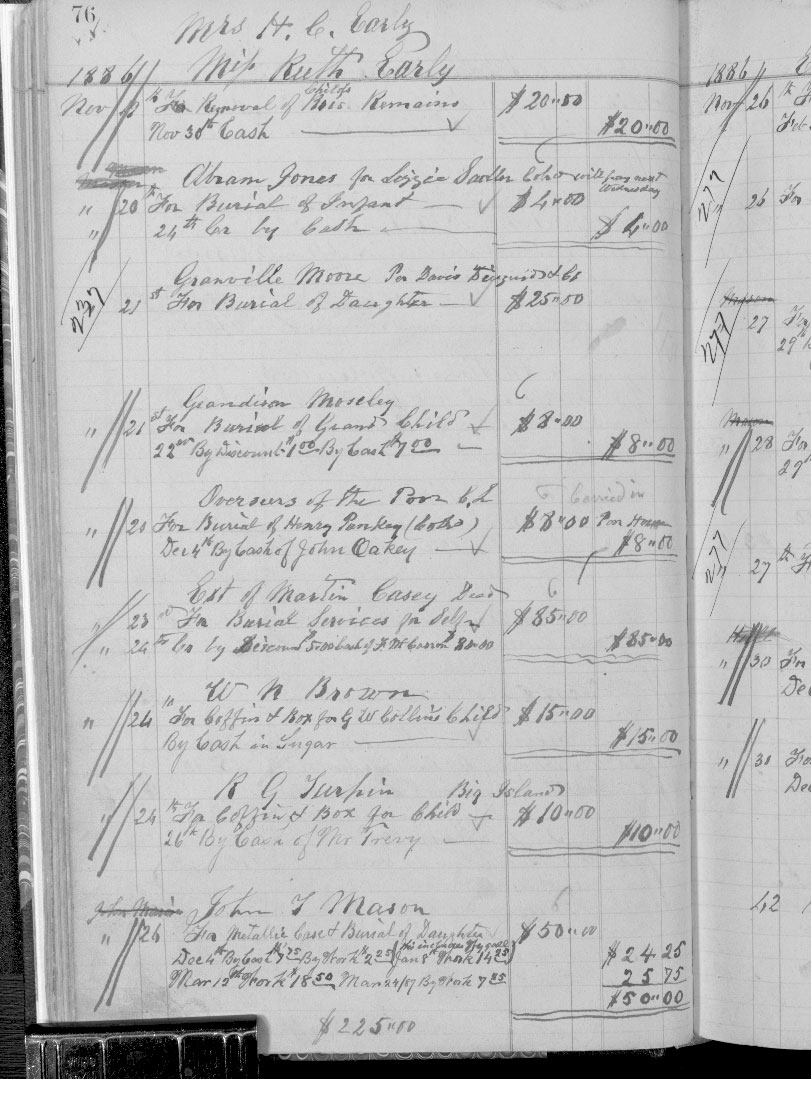 76
Mrs H. C. Early
1886 Miss Ruth Early
Nov For Removal of Childs Remains $20"00
Nov 30th Cash $20"00
Abram Jones for Lizzie Cold will pay next Wednesday
" 20th For Burial of Infant $4"00
" 24th Cr by Cash $4"00
Granville Moore Per Davis Diuguid & Co
237 21st For Burial of Daughter $25"00
Grandison Moseley
" 21st For Burial of Grand Child $8"00
22nd By Discount $1.00 By Cash $7.00 $8"00
Overseers of the Poor C. L Carried in
" 20 For Burial of Henry Pankey (Cold) $8"00 Poor House
Dec 4th By Cash of John Oakey $8"00
Est of Martin Casey Dead
" 23rd For Burial Services for Self $85"00
" 24th Cr by Discount 5.00 Cash of 80.00 $85"00
W N Brown
" 24th For Coffin & Box for G W Collins Child $15"00
By Cash in Sugar $15"00
R G Turpin Big Island
" 24th For Coffin & Box for Child $10"00
26th By Cash of Mr Trevy $10"00
John Mason John T Mason
" 26 For Metallic Case & Burial of Daughter $50"00
Dec 4th By Cash $7 75 By Work $2 25 Jan 8th Work 14 25 $24 25
Mar 12th Work $18 50 Mar 24/87 By Work 7 25 25 75
$50"00
$225"00
1886
Nov 26
Feb
277
26 For
27
277 29
" 28 For
27th
277 27th
" 30 For
Dec
" 30 For
Dec
42